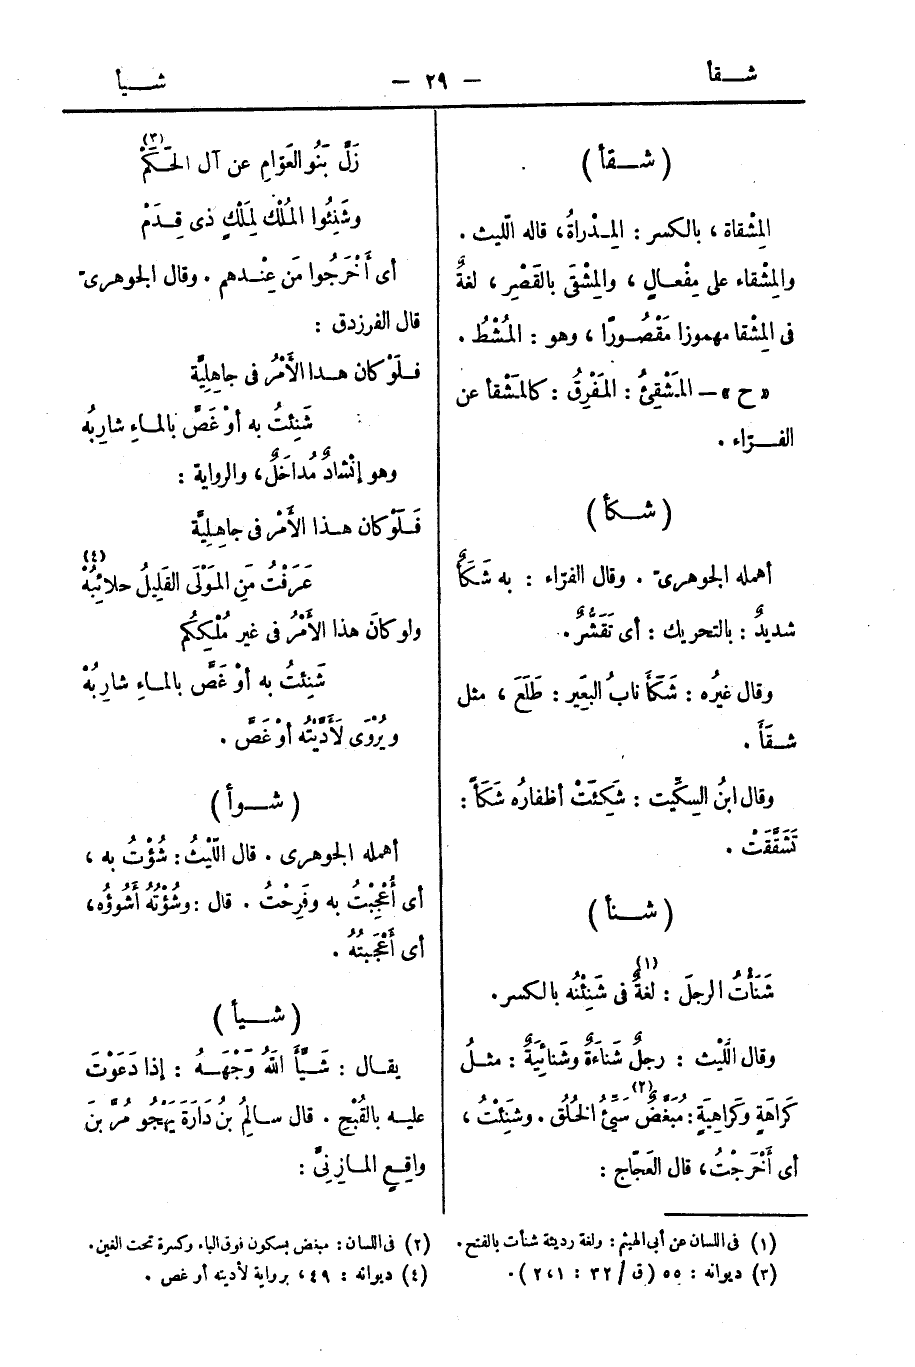 شــقأ
— ٢٩ —
شــيأ
( شــقأ )
المِشْقاة ، بالكسر : المِـدْراةُ، قاله اللّيث .
والمِشْقاء على مِفْعــالٍ ، والمِشْقَى بالقَصْرِ ، لغةٌ
فى المِشقا مهموزا مَقْصُــورًا ، وهو : المُشْطُ .
« ح » — المَشْقِئُ : المَفْرِقُ : كالمَشْقأ عن
الفــرّاء .
( شــكأ )
أهمله الجوهرىّ . وقال الفرّاء : به شَكَأٌ
شديدٌ : بالتحريك : أى تَقَشُّرٌ .
وقال غيرُه : شَكَأَ نابُ البعَير : طَلَعَ ، مثل
شــقَأَ .
وقال ابنُ السِكِّيت : شَكِئَتْ أظفارُه شَكَأً :
تَشَقَّقَتْ .
( شــنأ )
شَنَأْتُ الرجلَ : لغةٌ(١) فى شَنِئْتُه بالكسر.
وقال اللَّيث : رجلٌ شَناءَةٌ وشَنائِيَةٌ : مثــلُ
كَراهَةٍ وكَراهِيَةٍ : مُبَغَّضٌ(٢) سَيِّئُ الخُلُق . وشَنِئْتُ ،
أى أَخْرَجْتُ ، قال العَجّاج :
زَلَّ بَنُو العَوّامِ عن آل الحَـكَمْ(٣)
وشَنِئُوا المُلْكَ لِمَلْكٍ ذى قِـدَمْ
أى أَخْرَجُوا مَن عِنْــدهم . وقال الجوهرىّ
قال الفرزدق :
فــلَوْ كان هــدا الأَمْرُ فى جاهِلِيَّة
شَنِئتُ به أوْ غَصَّ بالمــاءِ شارِبُه
وهو إنْشادٌ مُداخَلٌ ، والرواية :
فَــلَوْ كان هــذا الأَمْر فى جاهِــلِيَّة
عَرَفْتُ مَنِ المَوْلَى القَلِيلُ حلائِبُهْ(٤)
ولو كانَ هذا الأمْرُ فى غير مُلْكِكُم
شَنِئتُ به أوْ غَصَّ بالمــاءِ شارِبُهْ
ويُرْوَى لَأَدَّيْتُه أوْ غَصَّ .
( شــوأ )
أهمله الجوهرى . قال اللّيْثُ : شُؤْتُ به ،
أى أُعْجِبْتُ به وفَرِحْتُ . قال : وشُؤْتُهُ أَشُوؤُه،
أى أَعْجَبتُهُ .
( شــيأ )
يقــال : شَــيَّأَ اللّهُ وَجْهَــهُ : إذا دَعَوْتَ
عليــه بالقُبْحِ . قال ســالِمُ بنُ دَارَةَ يَهْجُو مُرَّ بنَ
واقِعٍ المــازِنِىَّ :
(١) فى اللسان عن أبى الهيثم : ولغة رديئة شنأت بالفتح .
(٢) فى اللسان : مبغض بسكون فوق الياء وكسرة تحت الغين .
(٣) ديوانه : ٥٥ (ق / ٣٢ : ٢٠١) .
(٤) ديوانه : ٤٩ ، برواية لأديته أو غص .